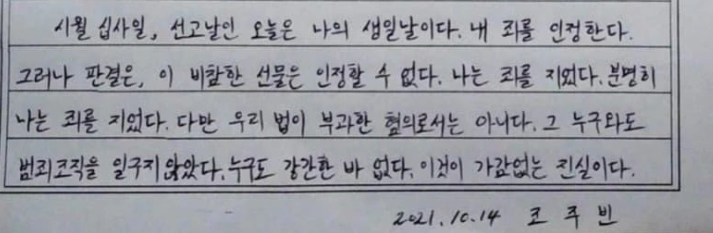 시월 십사일, 선고날인 오늘은 나의 생일날이다. 내 죄를 인정한다.
그러나 판결은, 이 비참한 선물은 인정할 수 없다. 나는 죄를 지었다. 분명히
나는 죄를 지었다. 다만 우리 법이 부과한 혐의로서는 아니다. 그 누구와도
범죄조직을 일구지 않았다. 누구도 강간한 바 없다. 이것이 가감없는 진실이다.
2021. 10. 14 조 주 빈